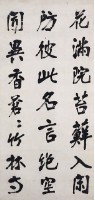 花滿院苔蘚入閑
房彼此名言絕空
聞異香蒼蒼竹林寺